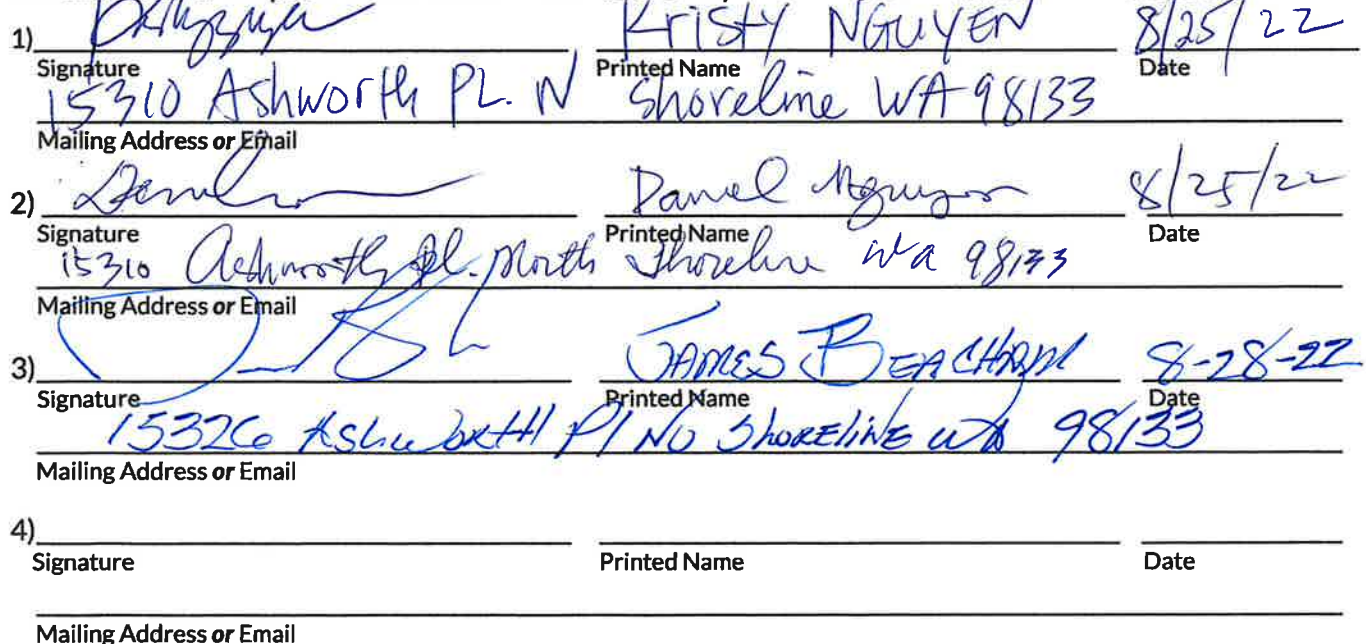 1) Kristy NGUYEN 8/25/22
Signature Printed Name Date
15310 Ashworth PL. N Shoreline WA 98133
Mailing Address or Email
2) Daniel Nguyen 8/25/22
Signature Printed Name Date
15310 Ashworth Pl. North Shoreline Wa 98133
Mailing Address or Email
3) JAMES BEACHAM 8-28-22
Signature Printed Name Date
15326 AShwORTH Pl NO ShoRELINE WA 98133
Mailing Address or Email
4)
Signature Printed Name Date
Mailing Address or Email